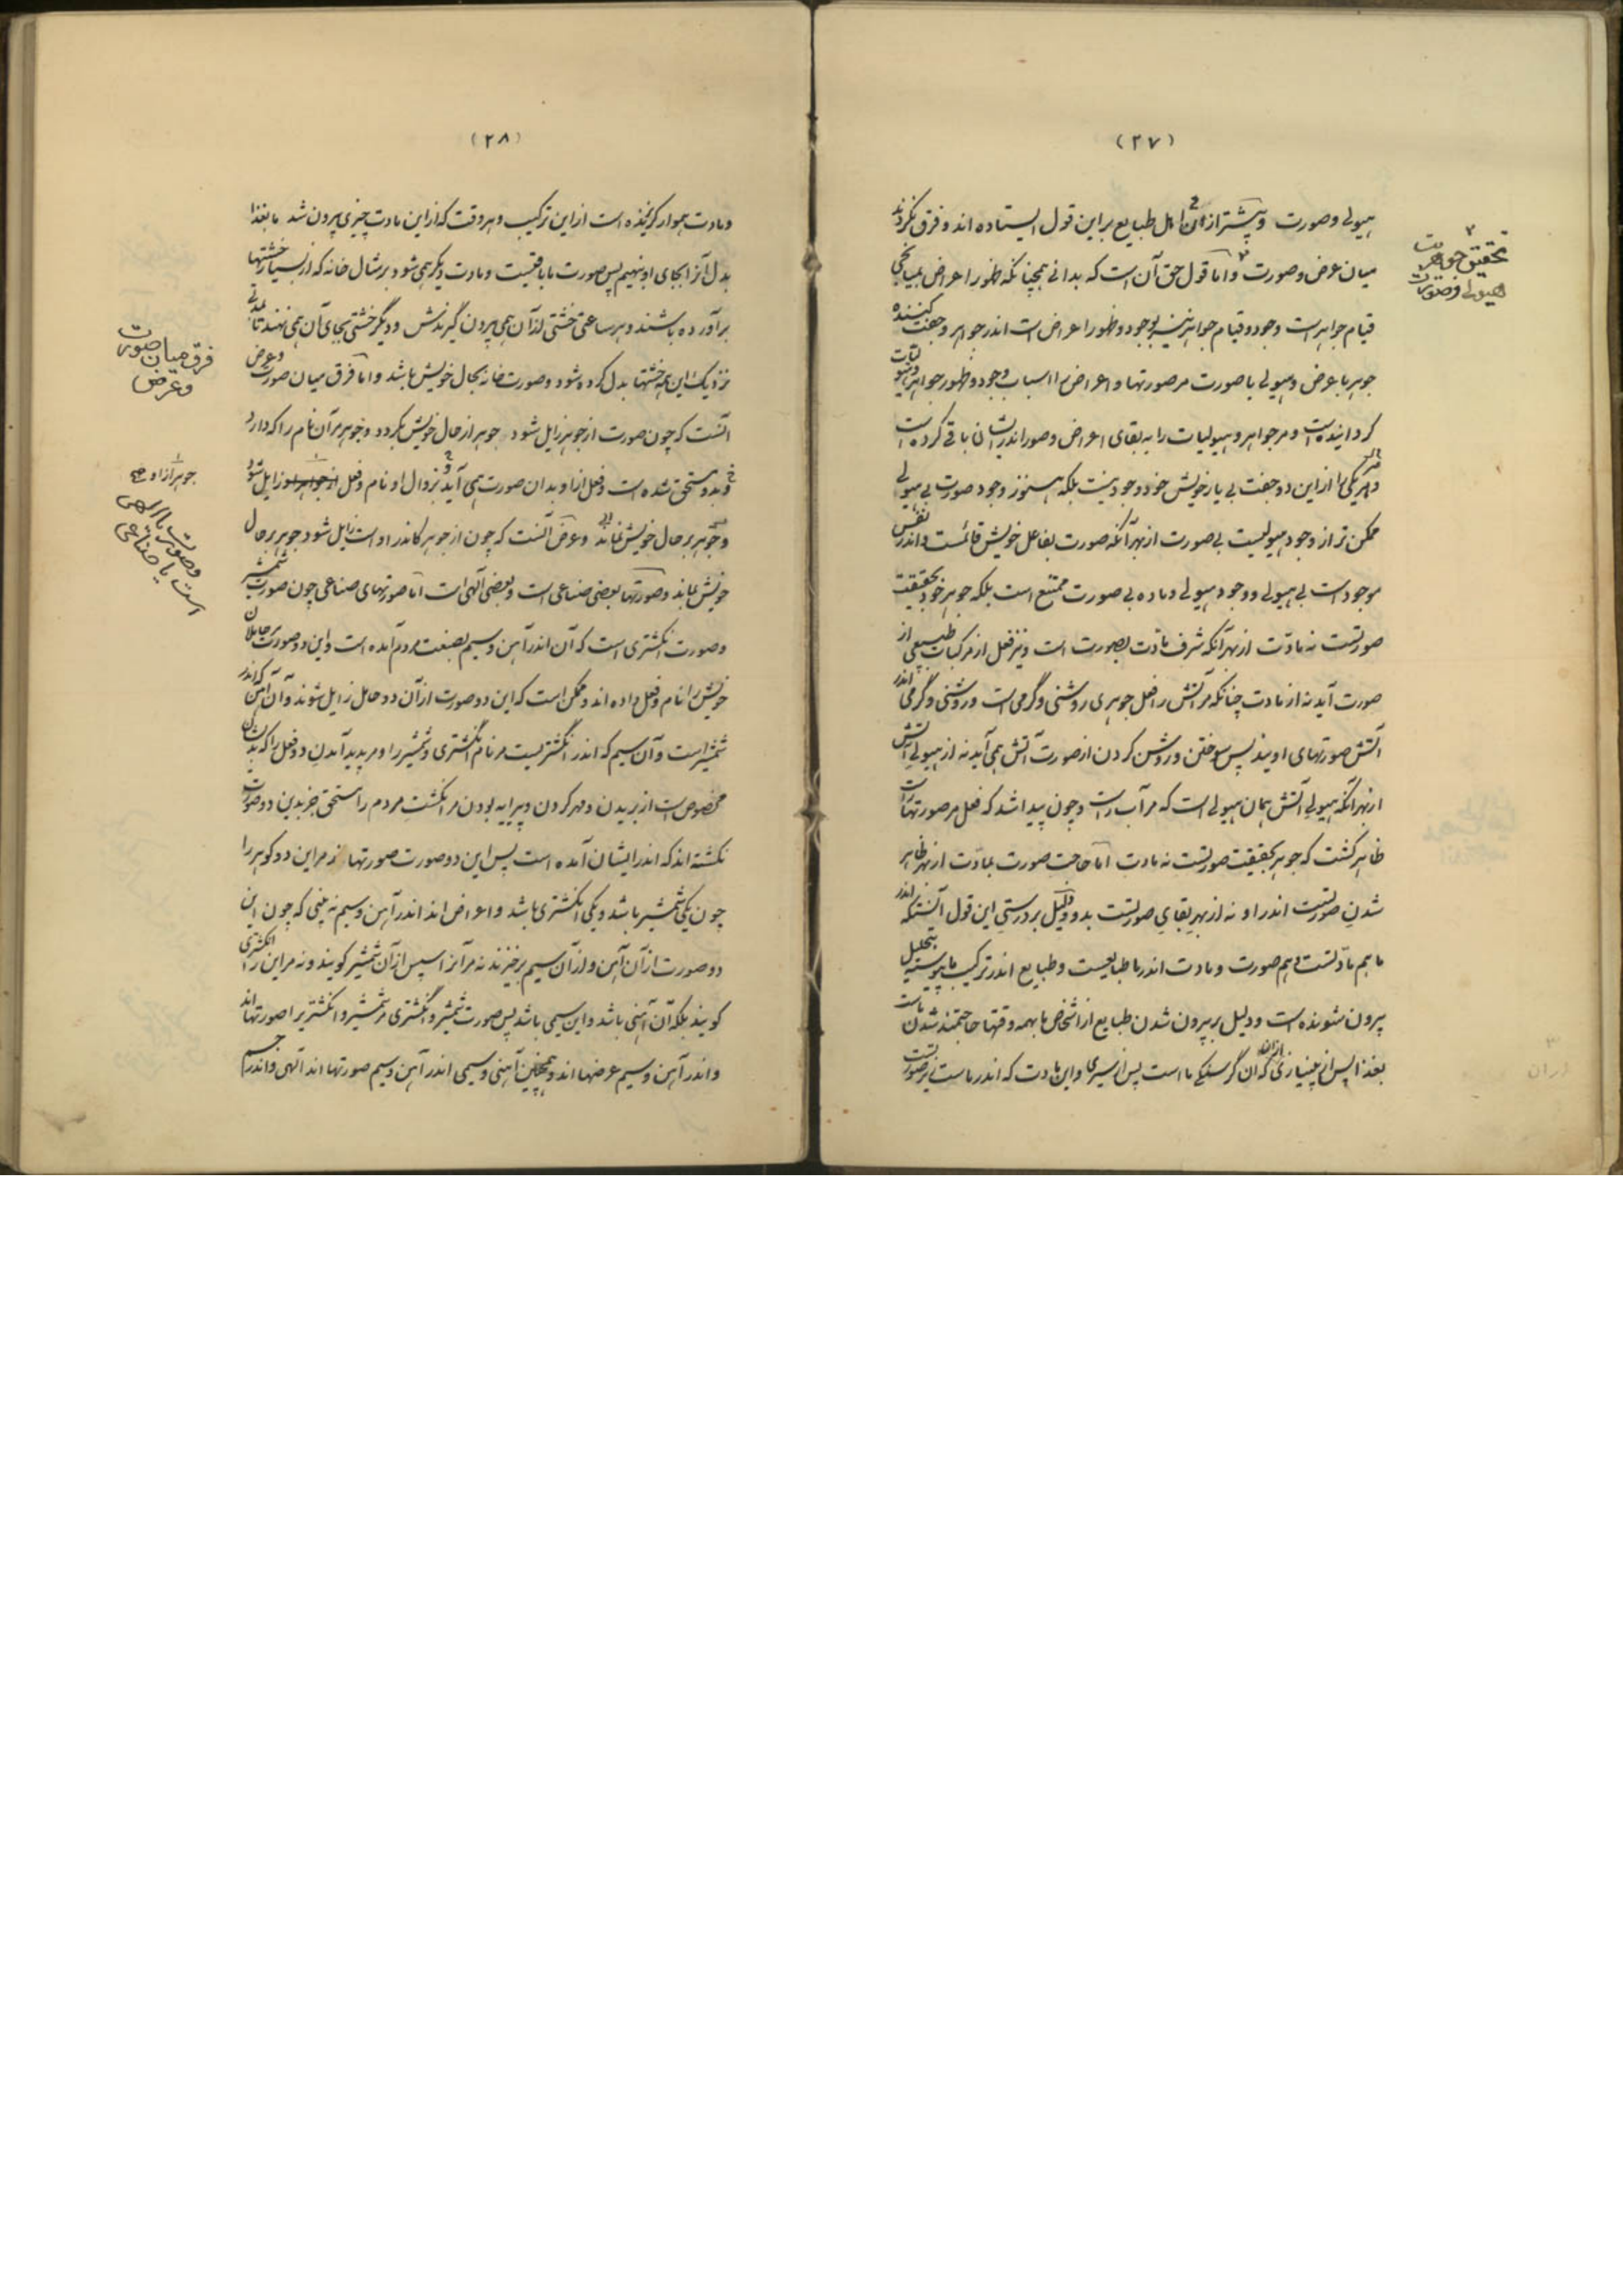 (٢٧)
هیولی و صورت و پیشتر از آن اهل طبایع بر این قول ایستاده‌اند و فرق نکردند
میان عرض و صورت و اما قول حق آن است که بدانی همچنانکه ظهور اعراض بمیانجی
قیام جواهرست وجود و قیام جواهر نیز بوجود و ظهور اعراض است اندر جواهر و جفت کننده
جوهر با عرض و هیولی با صورت مر صورتها و اعراض را اسباب وجود و ظهور جواهر و هیولیات
گردانیده است و مر جواهر و هیولیات را به بقای اعراض و صور اندریشان باقی کرده است
و هر یکی را از این دو جفت بی یار خویش خود وجود نیست بلکه هنوز وجود صورت بی هیولی
ممکن‌تر از وجود هیولیست بی صورت از بهر آنکه صورت بفاعل خویش قائمست و اندر نفس
موجود است بی هیولی و وجود هیولی و ماده بی صورت ممتنع است بلکه جوهر خود بحقیقت
صورتست نه مادت از بهر آنکه شرف مادت بصورت است و نیز فعل از مرکبات طبیعی از
صورت آید نه از مادت چنانکه مر آتش را فعل جوهری روشنی و گرمی است و روشنی و گرمی اندر
آتش صورتهای اویند پس سوختن و روشن کردن از صورت آتش همی آید نه از هیولی آتش
از بهر آنکه هیولی آتش همان هیولی است که مر آب راست و چون پیدا شد که فعل مر صورتها راست
ظاهر گشت که جوهر بحقیقت صورتست نه مادت اما حاجت صورت بمادت از بهر ظاهر
شدن صورتست اندر او نه از بهر بقای صورتست بدو و دلیل بر درستی این قول آنست که اندر
ما هم مادتست و هم صورت و مادت اندر ما طبایعست و طبایع اندر ترکیب ما پیوسته بتحلیل
بیرون شونده است و دلیل بر بیرون شدن طبایع از اشخاص ما بهمه وقتها حاجتمند شدن ماست
بغذا پس از بی‌نیازی از آن که آن گرسنگی ما است پس از سیری و این مادت که اندر ماست زیر صورتست
تحقیق جوهریت
هیولی و صورت
(٢٨)
و مادت هموار گریزنده است از این ترکیب و هر وقت که از این مادت چیزی بیرون شد ما بغذا
بدل آنرا بجای او بنهیم پس صورت ما باقیست و مادت دیگر همی شود و بر مثال خانه که از بسیار خشتها
برآورده باشند و هر ساعتی خشتی از آن همی بیرون گیرندش و دیگر خشتی بجای آن همی نهند تا بمدتی
نزدیک این همه خشتها بدل کرده شود و صورت خانه بحال خویش باشد و اما فرق میان صورت و عرض
آنست که چون صورت از جوهر زایل شود جوهر از حال خویش بگردد و جوهر مر آن نام را که دارد
بدو مستحق شده است و فعل از او بدان صورت همی آید و بزوال او نام و فعل از جواهر او زایل شود
و جوهر بر حال خویش نماند و عرض آنست که چون از جوهر کاندر او است زایل شود جوهر بر حال
خویش بماند و صورتها بعضی صناعی است و بعضی الهی است اما صورتهای صناعی چون صورت شمشیر
و صورت انگشتری است که آن اندر آهن و سیم بصنعت مردم آمده است و این دو صورت حاملان
خویش را نام و فعل داده‌اند و ممکن است که این دو صورت از آن دو حامل زایل شوند و آن آهن که اندر
شمشیر است و آن سیم که اندر انگشتریست مر نام انگشتری و شمشیر را و مر پدید آمدن دو فعل را که بدیشان
مخصوص است از بریدن و مهر کردن و پیرایه بودن مر انگشت مردم را مستحق جز بدین دو صورت
نگشته‌اند که اندر ایشان آمده است پس این دو صورت صورتها اند مر این دو گوهر را
چون یکی شمشیر باشد و یکی انگشتری باشد و اعراض اند اندر آهن و سیم نه بینی که چون این
دو صورت از آن آهن و از آن سیم برخیزند نه مر آنرا سپس از آن شمشیر گویند و نه مر این را انگشتری
گویند بلکه آن آهنی باشد و این سیمی باشد پس صورت شمشیر و انگشتری مر شمشیر و انگشتری را صورتها اند
و اندر آهن و سیم عرضها اند و همچنین آهنی و سیمی اندر آهن و سیم صورتها اند الهی و اندر جسم
فرق میان صورت
و عرض
جوهر از او صح
و صورت یا الهی
است یا صناعی